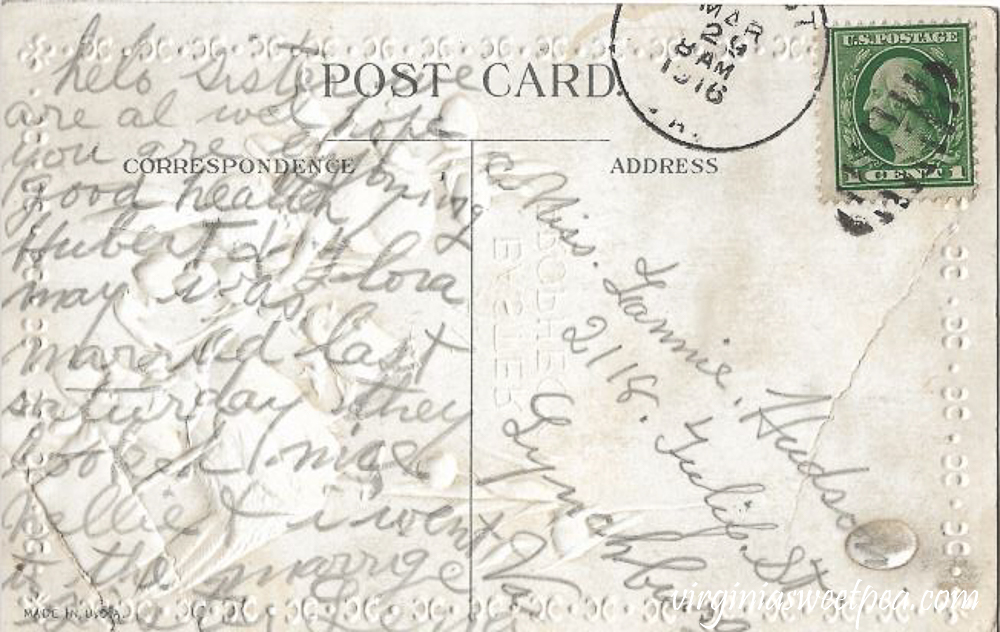 helo Sister we
are al well hope
you are enjoying
good health
Hubert & Flora
may was
married last
saturday they
looked nice
Nellie & i went
to the marrige
POST CARD.
CORRESPONDENCE
ADDRESS
MAR
29
8 AM
1916
VA.
U.S. POSTAGE
CENT 1
Miss. Lannie. Hudson
2116. Tulip. St
Lynchburg
Va
EASTER
MADE IN U.S.A.
virginiasweetpea.com